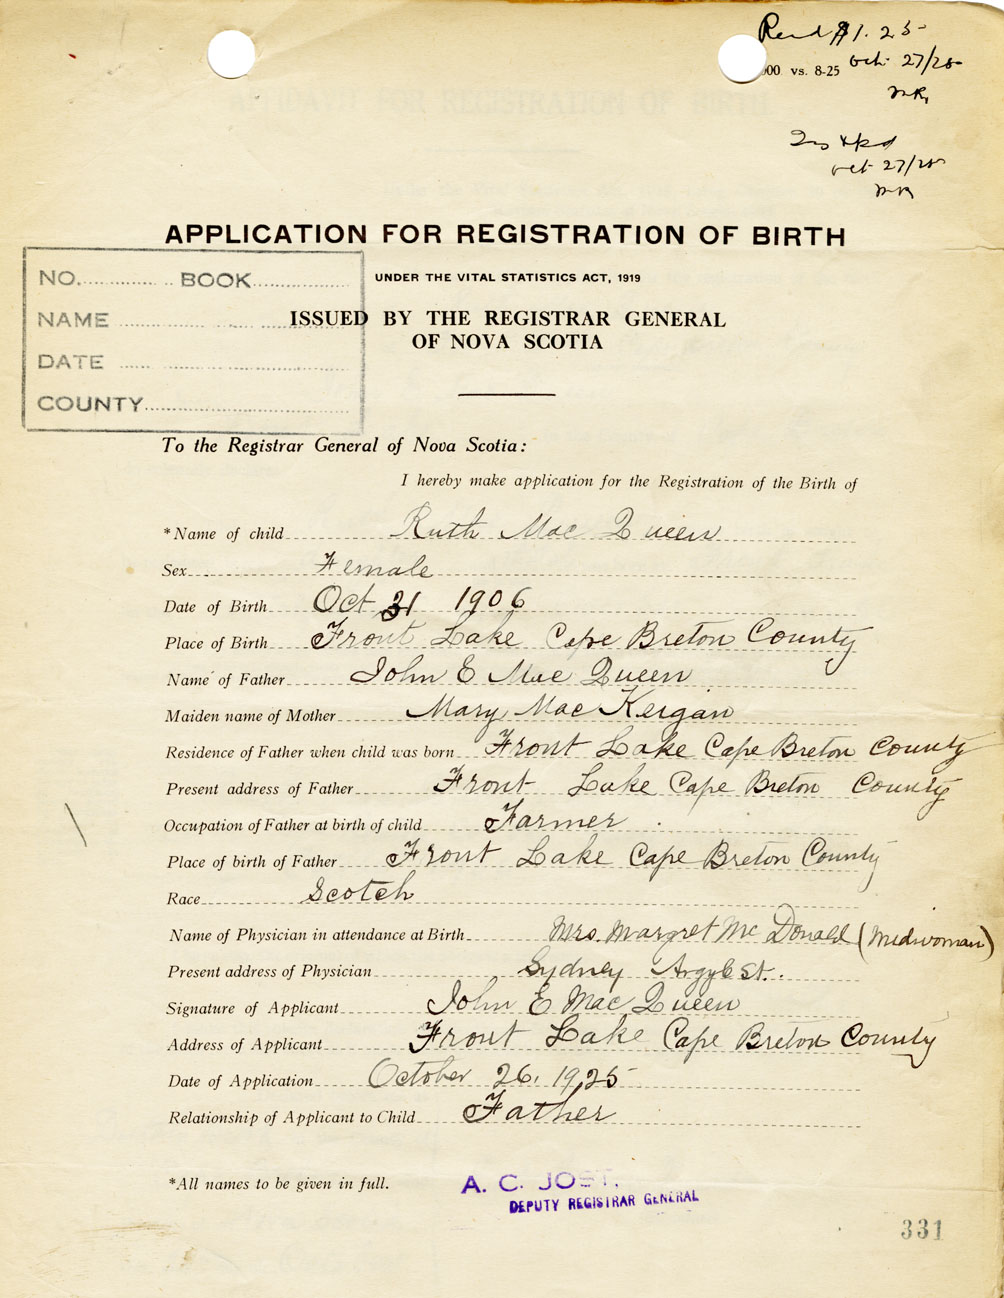 Recd $1.25
000 vs. 8-25 Oct. 27/25
MR
Oct 27/25
MR
APPLICATION FOR REGISTRATION OF BIRTH
UNDER THE VITAL STATISTICS ACT, 1919
ISSUED BY THE REGISTRAR GENERAL
OF NOVA SCOTIA
NO. BOOK
NAME
DATE
COUNTY
To the Registrar General of Nova Scotia:
I hereby make application for the Registration of the Birth of
*Name of child Ruth Mac Queen
Sex Female
Date of Birth Oct 31 1906
Place of Birth Front Lake Cape Breton County
Name of Father John E Mac Queen
Maiden name of Mother Mary Mac Keigan
Residence of Father when child was born Front Lake Cape Breton County
Present address of Father Front Lake Cape Breton County
Occupation of Father at birth of child Farmer
Place of birth of Father Front Lake Cape Breton County
Race Scotch
Name of Physician in attendance at Birth Mrs. Margret Mc Donald (Midwoman)
Present address of Physician Sydney Argyle St.
Signature of Applicant John E Mac Queen
Address of Applicant Front Lake Cape Breton County
Date of Application October 26, 1925
Relationship of Applicant to Child Father
*All names to be given in full.
A. C. JOST,
DEPUTY REGISTRAR GENERAL
331